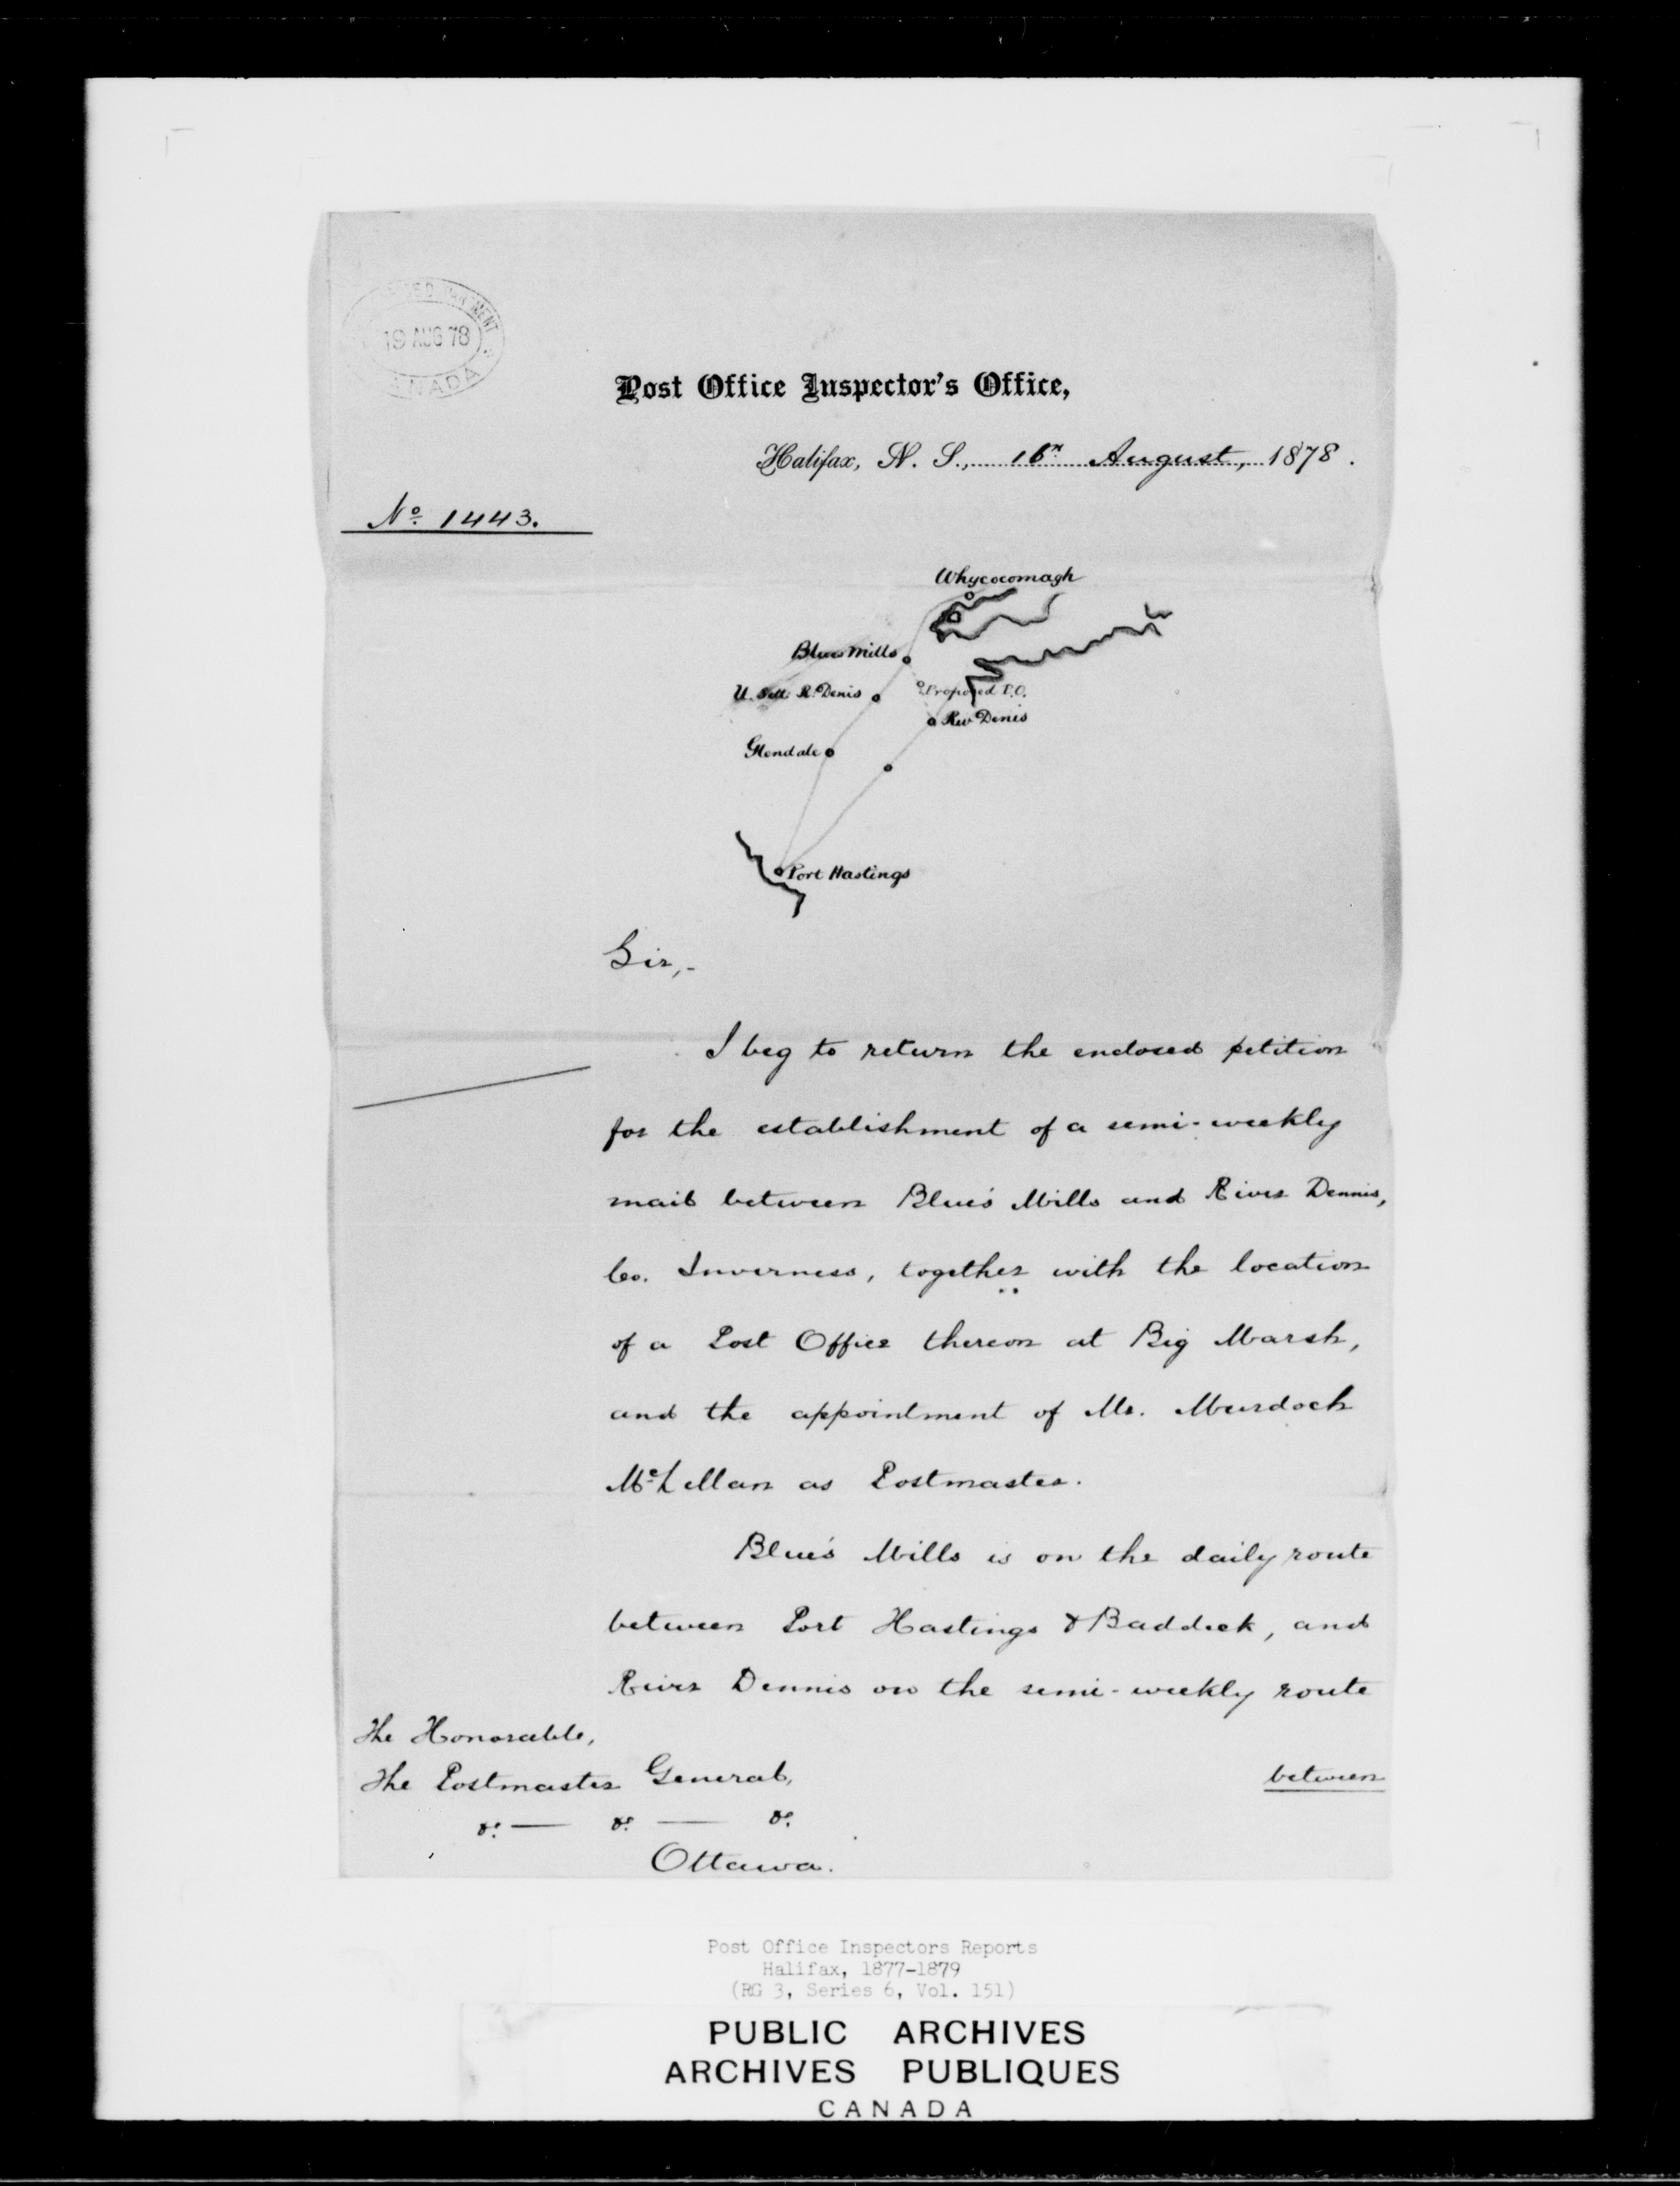 19 AUG 78
CANADA
Post Office Inspector's Office,
Halifax, N. S., 16th August, 1878.
No. 1443.
Whycocomagh
Blues Mills
U. Sett. R. Denis
Proposed P.O.
Riv Denis
Glendale
Port Hastings
Sir,-
I beg to return the enclosed petition
for the establishment of a semi-weekly
mail between Blue's Mills and River Dennis,
Co. Inverness, together with the location
of a Post Office thereon at Big Marsh,
and the appointment of Mr. Murdoch
McLellan as Postmaster.
Blue's Mills is on the daily route
between Port Hastings & Baddeck, and
River Dennis on the semi-weekly route
between
The Honorable,
The Postmaster General,
&c. — &c. — &c.
Ottawa.
Post Office Inspectors Reports
Halifax, 1877-1879
(RG 3, Series 6, Vol. 151)
PUBLIC ARCHIVES
ARCHIVES PUBLIQUES
CANADA